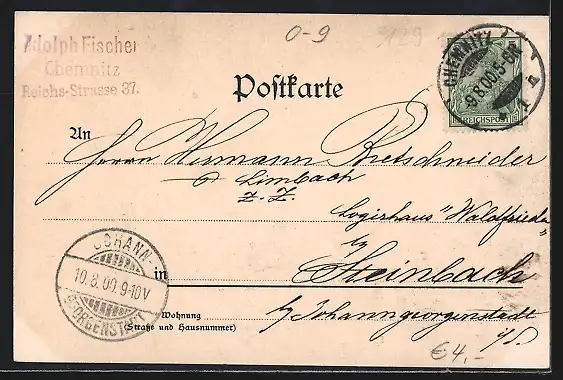 0-9
129
Adolph Fischer
Chemnitz
Reichs-Strasse 37.
CHEMNITZ
9.8.00.5-6N
REICHSPOST
Postkarte
An
Herrn Hermann Bretschneider
Limbach
z. Z.
Logirhaus "Waldfrieden"
in Steinbach
b/ Johanngeorgenstadt
i/S.
JOHANN-
10.8.00.9-10V
GEORGENSTADT
Wohnung
(Straße und Hausnummer)
€4,-